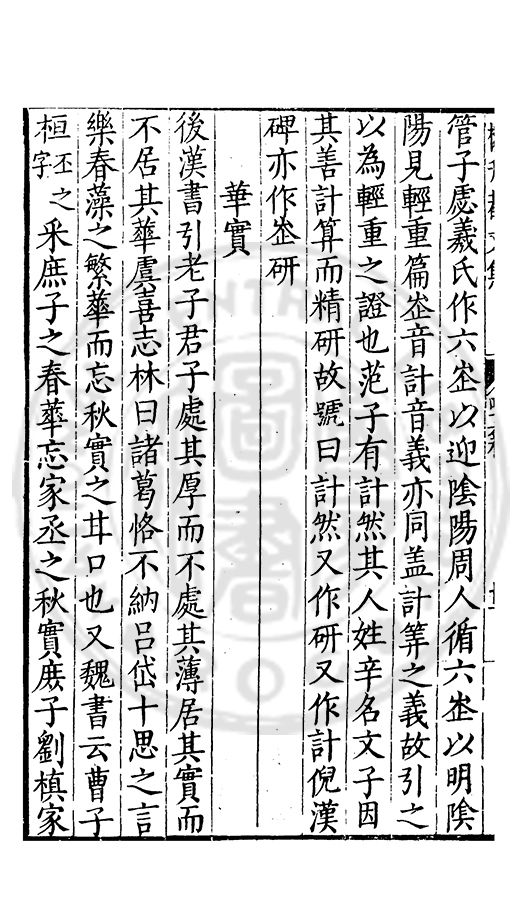 管子虙羲氏作六峜以迎陰陽周人循六峜以明陰
陽見輕重篇峜音計音義亦同盖計筭之義故引之
以為輕重之證也范子有計然其人姓辛名文子因
其善計算而精研故號曰計然又作研又作計倪漢
碑亦作峜研
華實
後漢書引老子君子處其厚而不處其薄居其實而
不居其華虞喜志林曰諸葛恪不納呂岱十思之言
樂春藻之繁華而忘秋實之甘口也又魏書云曹子
桓丕字之采庶子之春華忘家丞之秋實庶子劉楨家